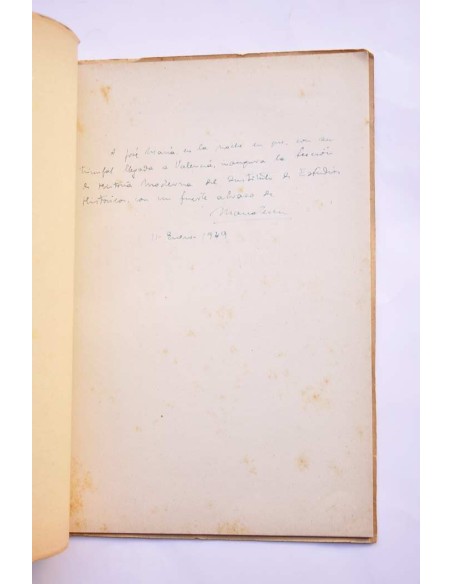 A José María en la noche en que, con su
triunfal llegada a Valencia, inaugura la Sección
de Historia Moderna del Instituto de Estudios
Históricos, con un fuerte abrazo de
Enero 1949